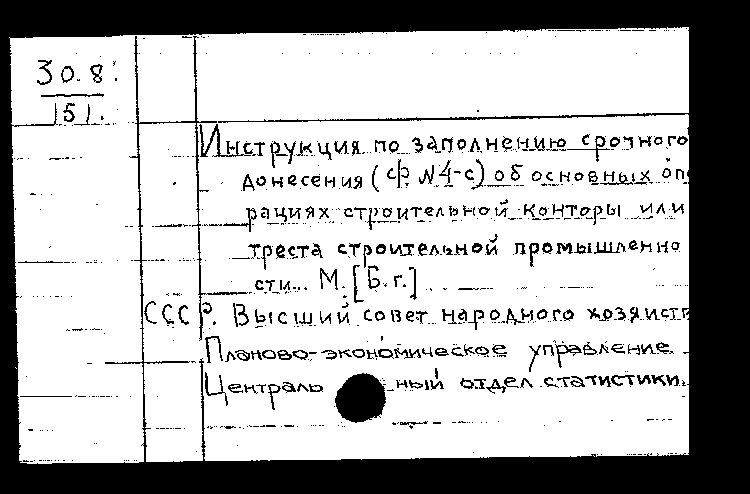 30.8:
151.
Инструкция по заполнению срочного
донесения (ф. №4-с) об основных опе
рациях строительной конторы или
треста строительной промышленно
сти... М. [Б.г.]
СССР. Высший совет народного хозяйств
Планово-экономическое управление
Централь ный отдел статистики.